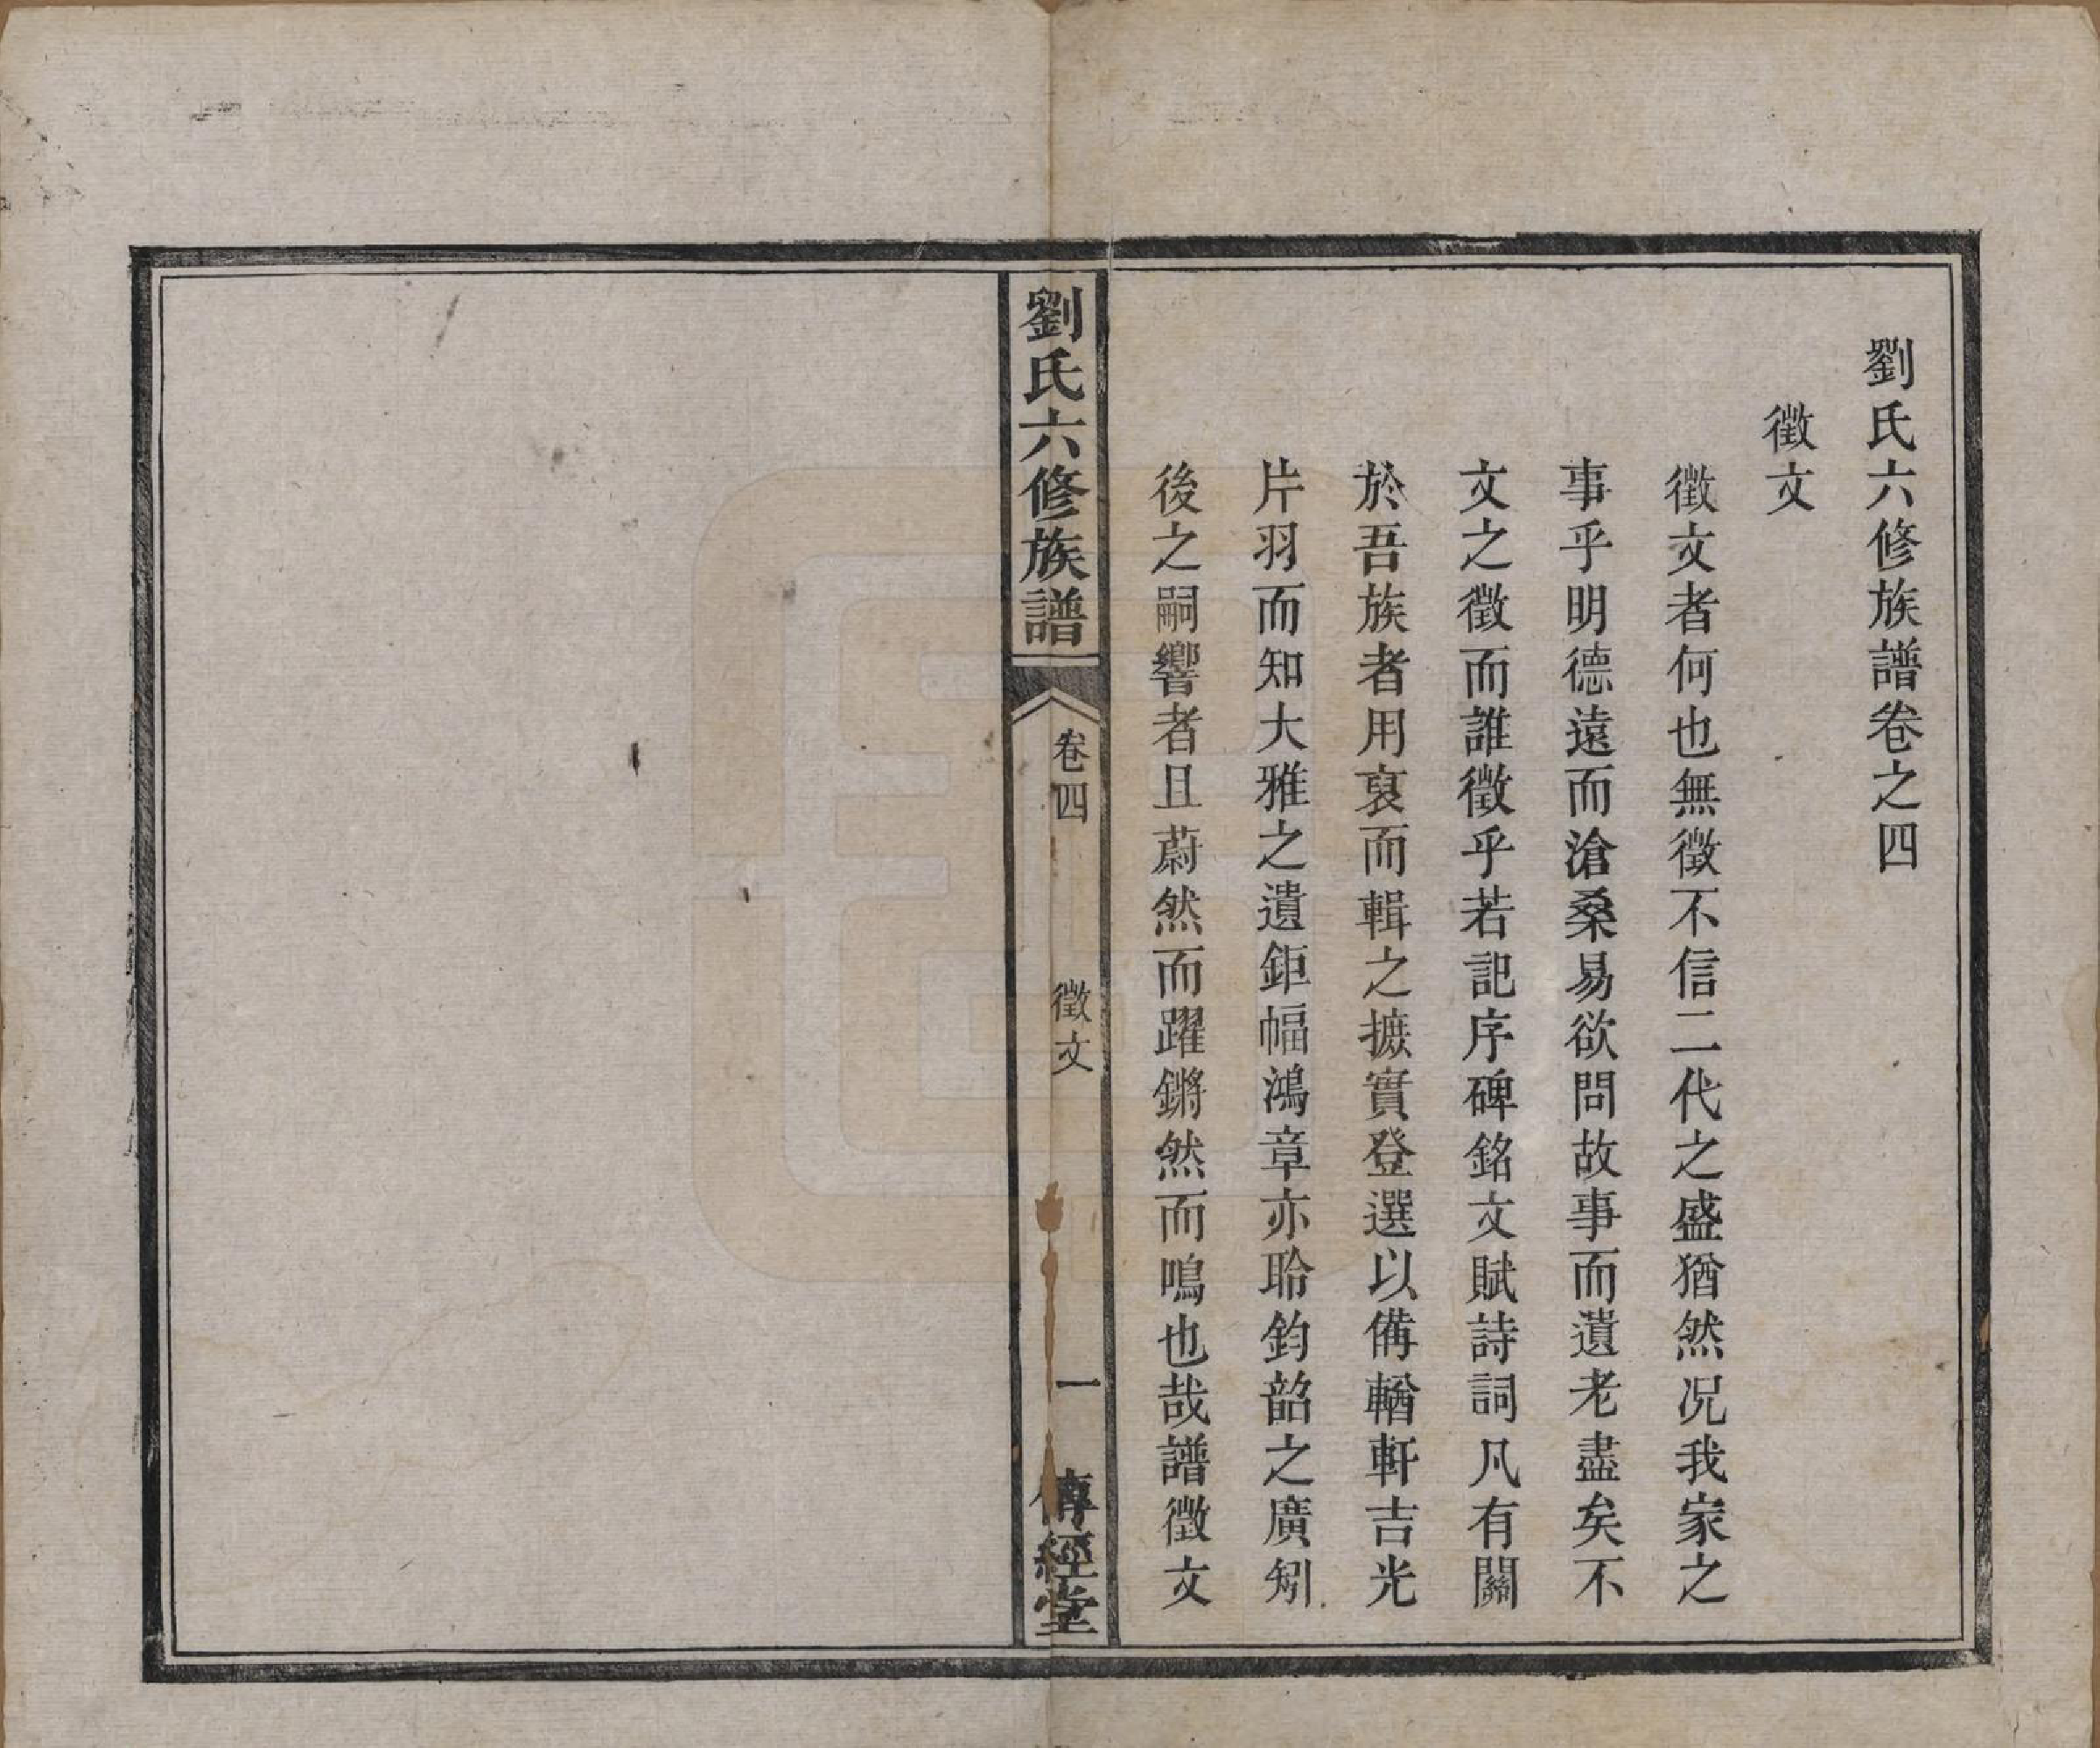 劉氏六修族譜卷之四
徵文
徵文者何也無徵不信二代之盛猶然况我家之
事乎明德遠而滄桑易欲問故事而遺老盡矣不
文之徵而誰徵乎若記序碑銘文賦詩詞凡有關
於吾族者用裒而輯之摭實登選以備輶軒吉光
片羽而知大雅之遺鉅幅鴻章亦聆鈞韶之廣矧
後之嗣響者且蔚然而躍鏘然而鳴也哉譜徵文
劉氏六修族譜
卷四
徵文
一
傳經堂